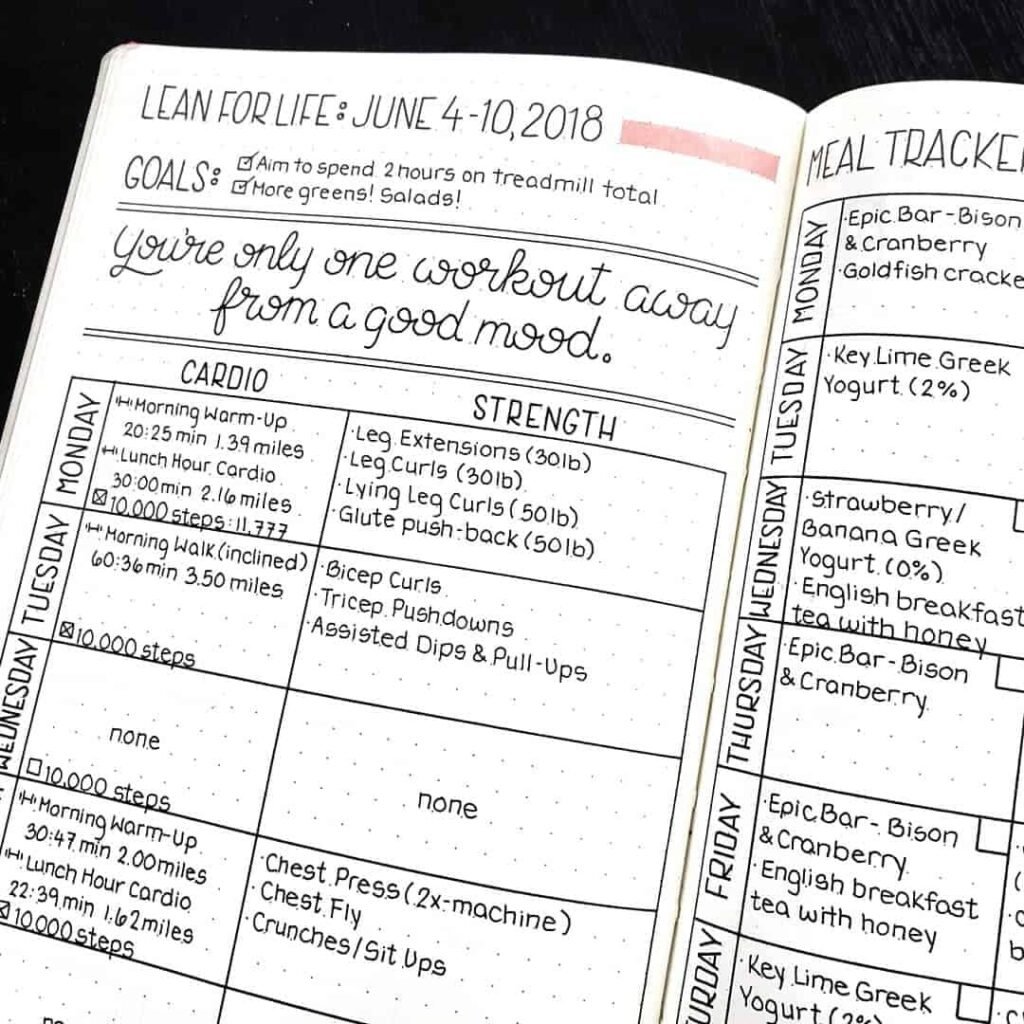 LEAN FOR LIFE: JUNE 4-10, 2018
GOALS:
Aim to spend 2 hours on treadmill total
More greens! Salads!
You're only one workout away
from a good mood.
CARDIO
STRENGTH
MONDAY
Morning Warm-Up
20:25 min 1.39 miles
Lunch Hour Cardio
30:00 min 2.16 miles
10,000 steps: 11,777
·Leg Extensions (30lb)
·Leg Curls (30lb)
·Lying Leg Curls (50lb)
·Glute push-back (50lb)
TUESDAY
Morning Walk (inclined)
60:36 min 3.50 miles
10,000 steps
·Bicep Curls
·Tricep Pushdowns
·Assisted Dips & Pull-Ups
WEDNESDAY
none
10,000 steps
none
Morning Warm-Up
30:47 min 2.00 miles
Lunch Hour Cardio
22:39 min 1.62 miles
10,000 steps
·Chest Press (2x-machine)
·Chest Fly
·Crunches/Sit Ups
MEAL TRACKE
MONDAY
·Epic Bar - Bison
& Cranberry
·Goldfish cracke
TUESDAY
·Key Lime Greek
Yogurt (2%)
WEDNESDAY
·Strawberry/
Banana Greek
Yogurt (0%)
·English breakfast
tea with honey
THURSDAY
·Epic Bar - Bison
& Cranberry
FRIDAY
·Epic Bar - Bison
& Cranberry
·English breakfast
tea with honey
URDAY
·Key Lime Greek
Yogurt (2%)